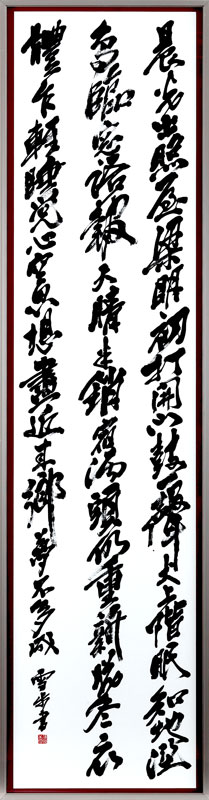 晨光出照屋梁明初打開門鼓一聲犬上階眠知地濕
鳥臨窗語報天晴半銷宿酒頭仍重新脫冬衣
體乍輕睡覺心空思想盡近來鄉夢不多成 雪書